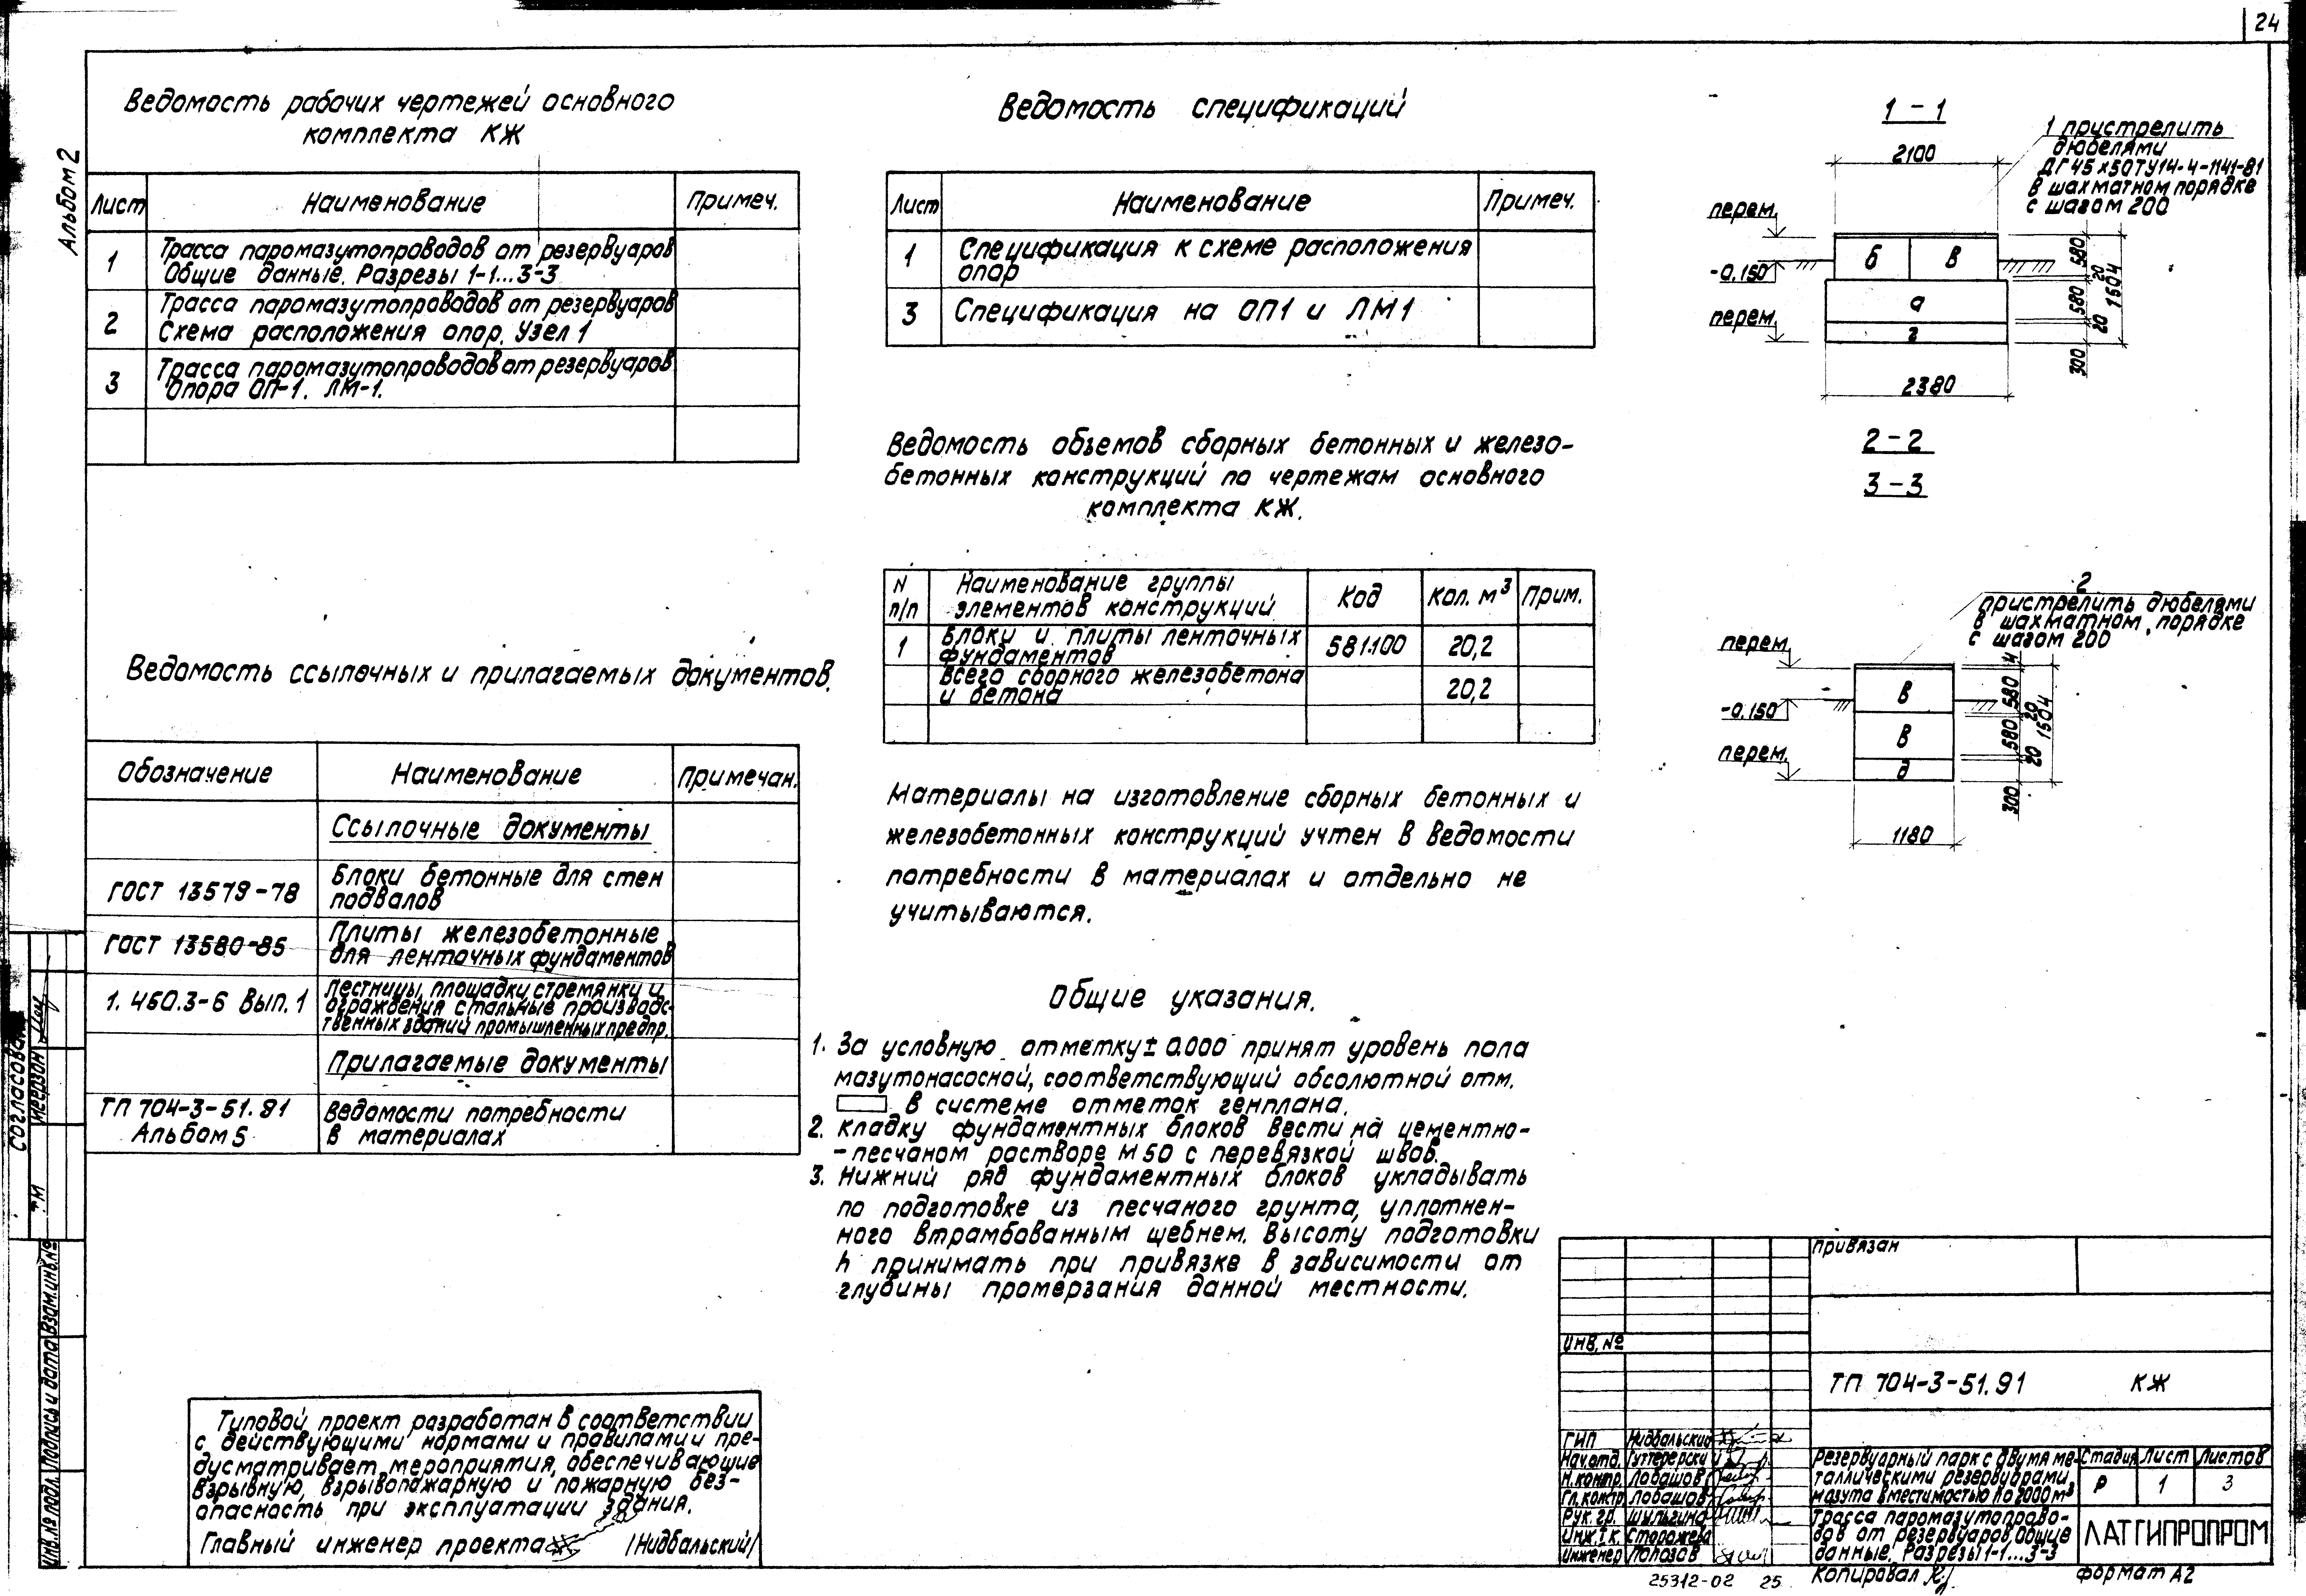 24
Альбом 2
Ведомость рабочих чертежей основного
комплекта КЖ
Лист Наименование Примеч.
1 Трасса паромазутопроводов от резервуаров
Общие данные. Разрезы 1-1...3-3
2 Трасса паромазутопроводов от резервуаров
Схема расположения опор. Узел 1
3 Трасса паромазутопроводов от резервуаров
Опора ОП-1. ЛМ-1.
Ведомость ссылочных и прилагаемых документов.
Обозначение Наименование Примечан.
Ссылочные документы
ГОСТ 13579-78 Блоки бетонные для стен
подвалов
ГОСТ 13580-85 Плиты железобетонные
для ленточных фундаментов
1.450.3-6 Вып.1 Лестницы, площадки, стремянки и
ограждения стальные производс-
твенных зданий промышленных предпр.
Прилагаемые документы
ТП 704-3-51.91 Ведомости потребности
Альбом 5 в материалах
Типовой проект разработан в соответствии
с действующими нормами и правилами и пре-
дусматривает мероприятия, обеспечивающие
взрывную, взрывопожарную и пожарную без-
опасность при эксплуатации здания.
Главный инженер проекта /Нидбальский/
Ведомость спецификаций
Лист Наименование Примеч.
1 Спецификация к схеме расположения
опор
3 Спецификация на ОП1 и ЛМ1
Ведомость объемов сборных бетонных и железо-
бетонных конструкций по чертежам основного
комплекта КЖ.
N п/п Наименование группы элементов конструкций Код Кол. м³ Прим.
1 Блоки и плиты ленточных фундаментов 581100 20,2
Всего сборного железобетона и бетона 20,2
Материалы на изготовление сборных бетонных и
железобетонных конструкций учтен в ведомости
потребности в материалах и отдельно не
учитываются.
Общие указания.
1. За условную отметку ± 0.000 принят уровень пола
мазутонасосной, соответствующий абсолютной отм.
в системе отметок генплана.
2. Кладку фундаментных блоков вести на цементно-
-песчаном растворе М50 с перевязкой швов.
3. Нижний ряд фундаментных блоков укладывать
по подготовке из песчаного грунта, уплотнен-
ного втрамбованным щебнем. Высоту подготовки
h принимать при привязке в зависимости от
глубины промерзания данной местности.
1-1
1 пристрелить
дюбелями
ДГ 45х50ТУ14-4-1141-81
в шахматном порядке
с шагом 200
2100
перем.
-0.150
перем.
б в
а
г
580
20
580
20
300
1504
2380
2-2
3-3
2
пристрелить дюбелями
в шахматном порядке
с шагом 200
перем.
-0.150
перем.
в
в
д
4
580
20
580
20
300
1504
1180
Согласован
Меерзон
Инв.№ подл. Подпись и дата Взам.инв.№
Привязан
Инв. №
ТП 704-3-51.91 КЖ
ГИП Нидбальский
Нач.отд. Гуттерерский
Н.контр. Лобашов
Гл.констр Лобашов
Рук.гр. Шульгина
Инж.I к. Сторожева
Инженер Полозов
Резервуарный парк с двумя ме-
таллическими резервуарами
мазута вместимостью по 2000 м³
Стадия Лист Листов
Р 1 3
Трасса паромазутопрово-
дов от резервуаров. Общие
данные. Разрезы 1-1...3-3
ЛАТГИПРОПРОМ
25312-02 25
Копировал
Формат А2